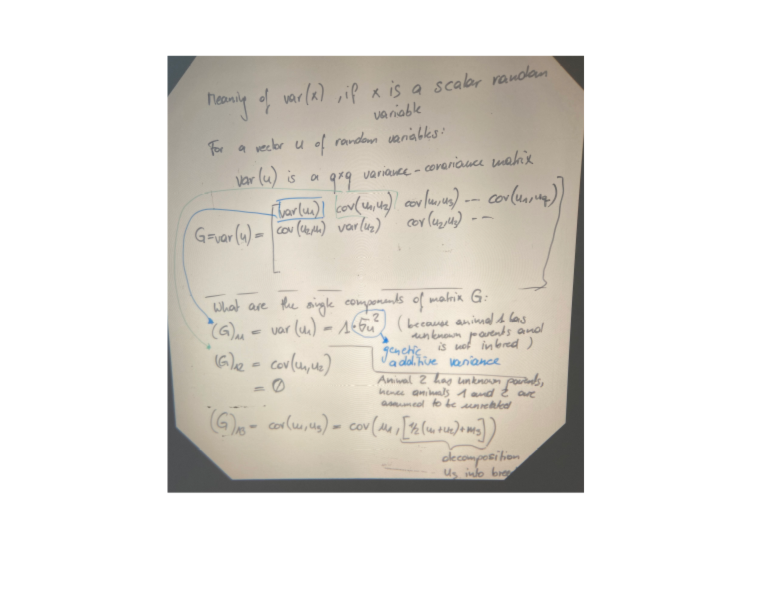 Meaning of var(x), if x is a scalar random
variable
For a vector u of random variables:
var(u) is a q×q variance-covariance matrix
G = var(u) = [ var(u₁) cov(u₁,u₂) cov(u₁,u₃) --- cov(u₁,u_q) ]
cov(u₂,u₁) var(u₂) cov(u₂,u₃) --
What are the single components of matrix G:
(G)₁₁ = var(u₁) = 1·σᵤ² (because animal 1 has
unknown parents and
is not inbred)
genetic
additive variance
(G)₁₂ = cov(u₁,u₂)
= 0
Animal 2 has unknown parents,
hence animals 1 and 2 are
assumed to be unrelated
(G)₁₃ = cov(u₁,u₃) = cov(u₁,[½(u₁+u₂)+m₃])
decomposition
u₃ into